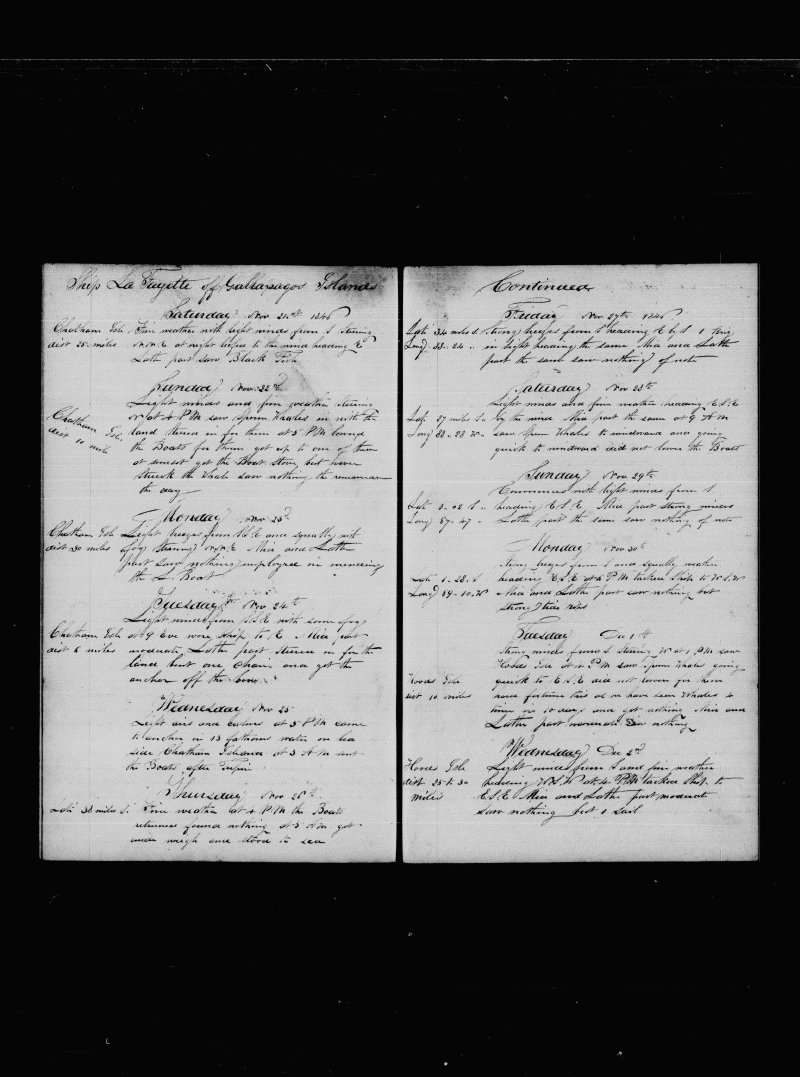 Ship La Fayette of Gallapagos Islands
Saturday Nov 21st 1846
Chatham Isle Fine weather with light winds from S steering
dist 25 miles N.N.E at night luffed to the wind heading E
Latter part saw Black Fish
Sunday Nov 22d
Light winds and fine weather steering
N at 4 PM saw Sperm Whales in with the
Chatham Isle land steered in for them at 5 PM lowered
dist 10 mile the Boats for them got up to one of them
at sunset got the Boat Stove but never
struck the Whale saw nothing the remainder
the day
Monday Nov 23d
Chatham Isle Light breezes from S.S.E and squally with
dist 30 miles fog steering N.N.E Mid and Latter
part saw nothing employed in mending
the L. Boat
Tuesday Nov 24th
Light winds from S.S.E with some fog
Chatham Isle at 9 Eve wore ship to E Mid part
dist 6 miles moderate Latter part steered in for the
land bent one Chain and got the
anchor off the bow
Wednesday Nov 25
Light airs and calms at 5 PM came
to anchor in 13 fathoms water on lea
side Chatham Island at 3 A M sent
the Boats after Turpin
Thursday Nov 26th
Latt 38 miles S. Fine weather at 4 PM the Boats
returned found nothing at 5 A M got
under weigh and stood to sea
Continued
Friday Nov 27th 1846
Latt 34 miles S. Strong breezes from S heading E by S 1 Brig
Long 88-24 in sight heading the same Mid and Latter
part the same saw nothing of note
Saturday Nov 28th
Light winds and fine weather heading E.S.E
Lat. 57 miles S. by the wind Mid part the same at 9 A M
Long 88-28 W saw Sperm Whales to windward and going
quick to windward did not lower the Boats
Sunday Nov 29th
Commences with light winds from S.
Latt 1-02 S heading E.S.E. Mid part strong winds
Long 87-47 Latter part the same saw nothing of note
Monday Nov 30th
Strong breezes from S and squally weather
Latt 1-28 S heading E.S.E at 4 PM tacked Ship to W.S.W
Long 89-10 W Mid and Latter part saw nothing but
strong tide rips
Tuesday Dec 1st
Strong winds from S steering W at 1 PM saw
Hoods Isle at 4 PM saw Sperm Whales going
Hoods Isle quick to E.S.E did not lower for them
dist 10 miles hard fortune this as we have seen Whales 4
times in 10 days and got nothing Mid and
Latter part moderate saw nothing
Wednesday Dec 2d
Hoods Isle Light winds from S and fine weather
dist 25 to 30 heading W.S.W at 4 PM tacked Ship to
miles E.S.E Mid and Latter part moderate
saw nothing but 1 Sail